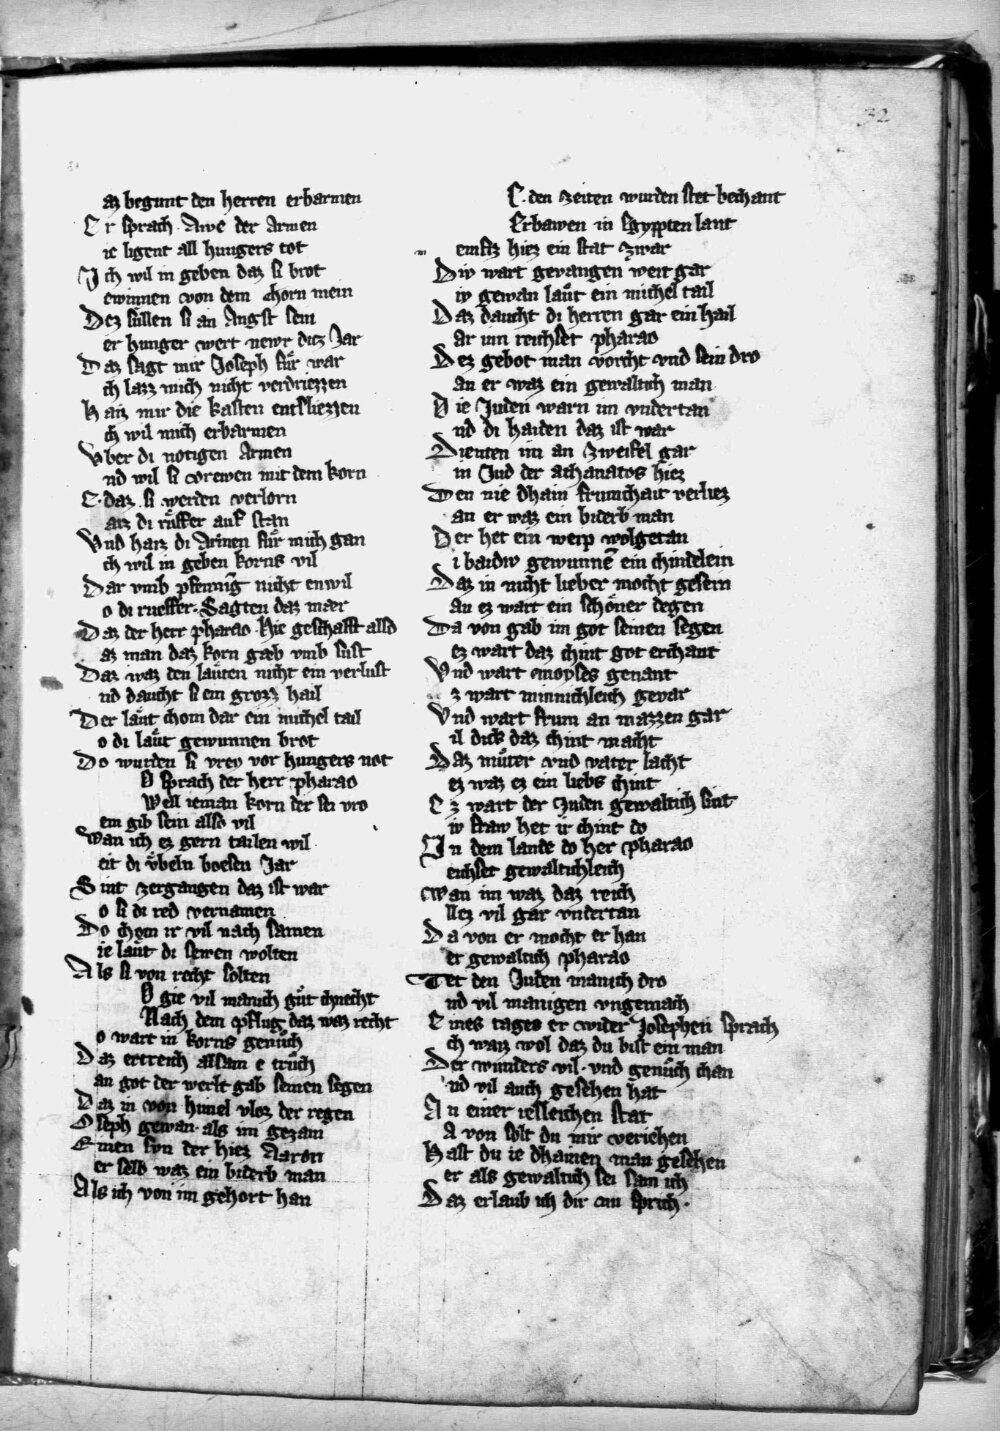 32
az begunt den herren erbarmen
Er sprach Awe der Armen
ie ligent all hungers tot
Ich wil in geben daz si brot
ewinnen von dem chorn mein
Dez sullen si an Angst sein
er hunger wert newr ditz Jar
Daz sagt mir Joseph fuͤr war
ch lazz mich nicht verdriezzen
Haiz mir die kasten entsliezzen
ch wil mich erbarmen
Vber di notigen Armen
nd wil si vrewen mit dem korn
E daz si werden verlorn
aiz di ruͤffer auf stan
Vnd haiz di Armen fuͤr mich gan
ch wil in geben korns vil
Dar vmb pfenning nicht enwil
o di rueffer Sagten daz mær
Daz der herr pharao hie geschafft also
az man daz korn gæb vmb sust
Daz waz den laͤuten nicht ein verlust
nd daucht si ein grozz hail
Der laͤut chom dar ein michel tail
o di laͤut gewunnen brot
Do wurden si vrey vor hungers not
O sprach der herr pharao
Well ieman korn der sei vro
em gib sein also vil
Wan ich ez gern tailen wil
eit di vͤbeln boesen Jar
Sint zergangen daz ist war
o si di red vernamen
Do chom ir vil nach samen
ie laͤut di sewen wolten
Als si von recht solten
O gie vil manich guͤt chnecht
Nach dem pflug daz waz recht
o wart in korns genuͤch
Daz ertreich alsam e truͤch
an got der werlt gab seinen segen
Daz in von himel vloz der regen
Oseph gewan als im gezam
Einen syn der hiez Aaron
er selb waz ein biderb man
Als ich von im gehort han
E den zeiten wurden stet bechant
Erbawen in Egypten lant
emfiz hiez ein stat zwar
Div wart gevangen weit gar
iv gewan laͤut ein michel tail
Daz daucht di herren gar ein hail
ar inn reichset pharao
Dez gebot man vorcht vnd sein dro
an er waz ein gewaltich man
Die Juden warn im vndertan
nd di haiden daz ist war
Dienten im an zweifel gar
in Jud der athanatos hiez
Den nie dhain frumchait verliez
an er waz ein biderb man
Der het ein weip wolgetan
i baidiv gewunnen ein chindelein
Daz in nicht lieber mocht gesein
an ez wart ein schoͤner degen
Da von gab im got seinen segen
ez wart daz chint got erchant
Vnd wart moyses genant
z wart minnichleich gevar
Vnd wart frum an mazzen gar
il dick daz chint macht
Daz muͤter vnd vater lacht
ez waz ez ein liebs chint
Ez wart der Juden gewaltich sint
iv fraw het ir chint do
In dem lande do her pharao
eichset gewaltichleich
Wan im waz daz reich
llez vil gar vndertan
Da von er mocht er han
er gewaltich pharao
Tet den Juden manich dro
nd vil manigen vngemach
Eines tages er wider Josephen sprach
ch waiz wol daz du bist ein man
Der wunders vil vnd genuͤch chan
nd vil auch gesehen hat
An einer iesleichen stat
A von solt du mir veriehen
Hast du ie dhainen man gesehen
er als gewaltich sei sam ich
Daz erlaub ich dir nu sprich